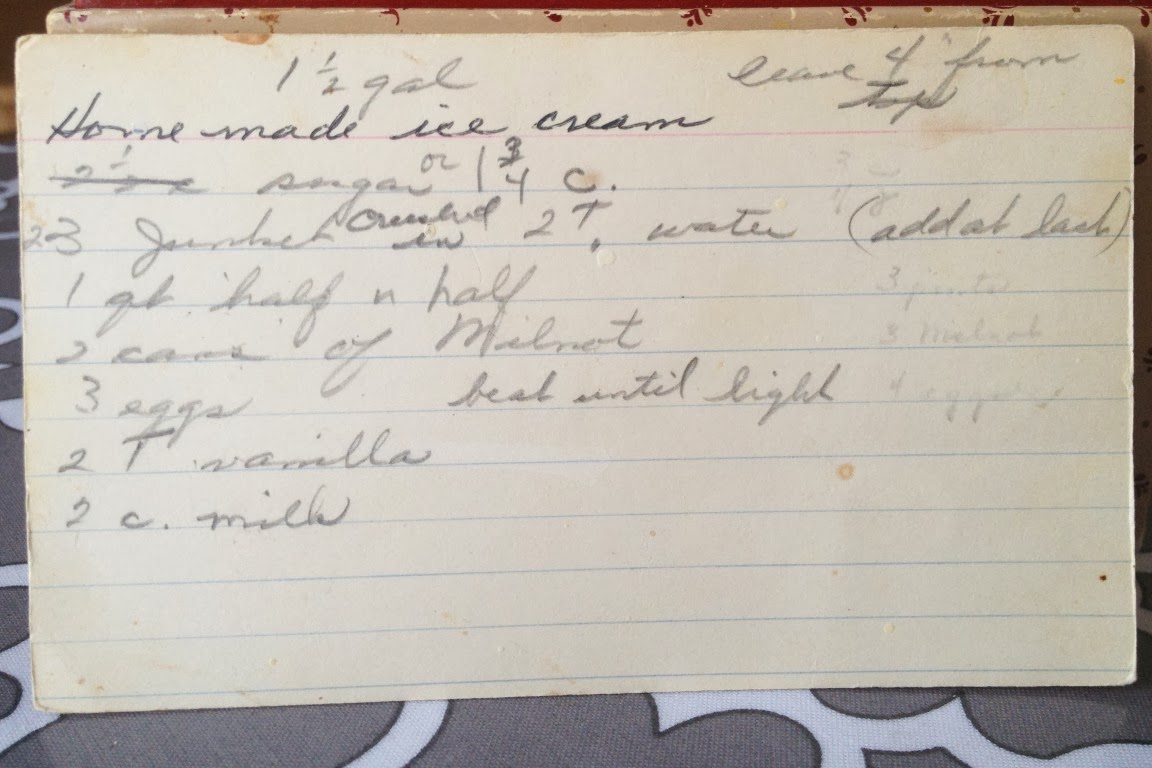 1 1/2 gal leave 4" from top
Home made ice cream
2 1/2 c sugar or 1 3/4 c.
2-3 Junket crushed in 2 T. water (add at last)
1 qt half n half
2 cans of Milnot
3 eggs beat until light
2 T vanilla
2 c. milk
3 pints
3 Milnot
4 eggs